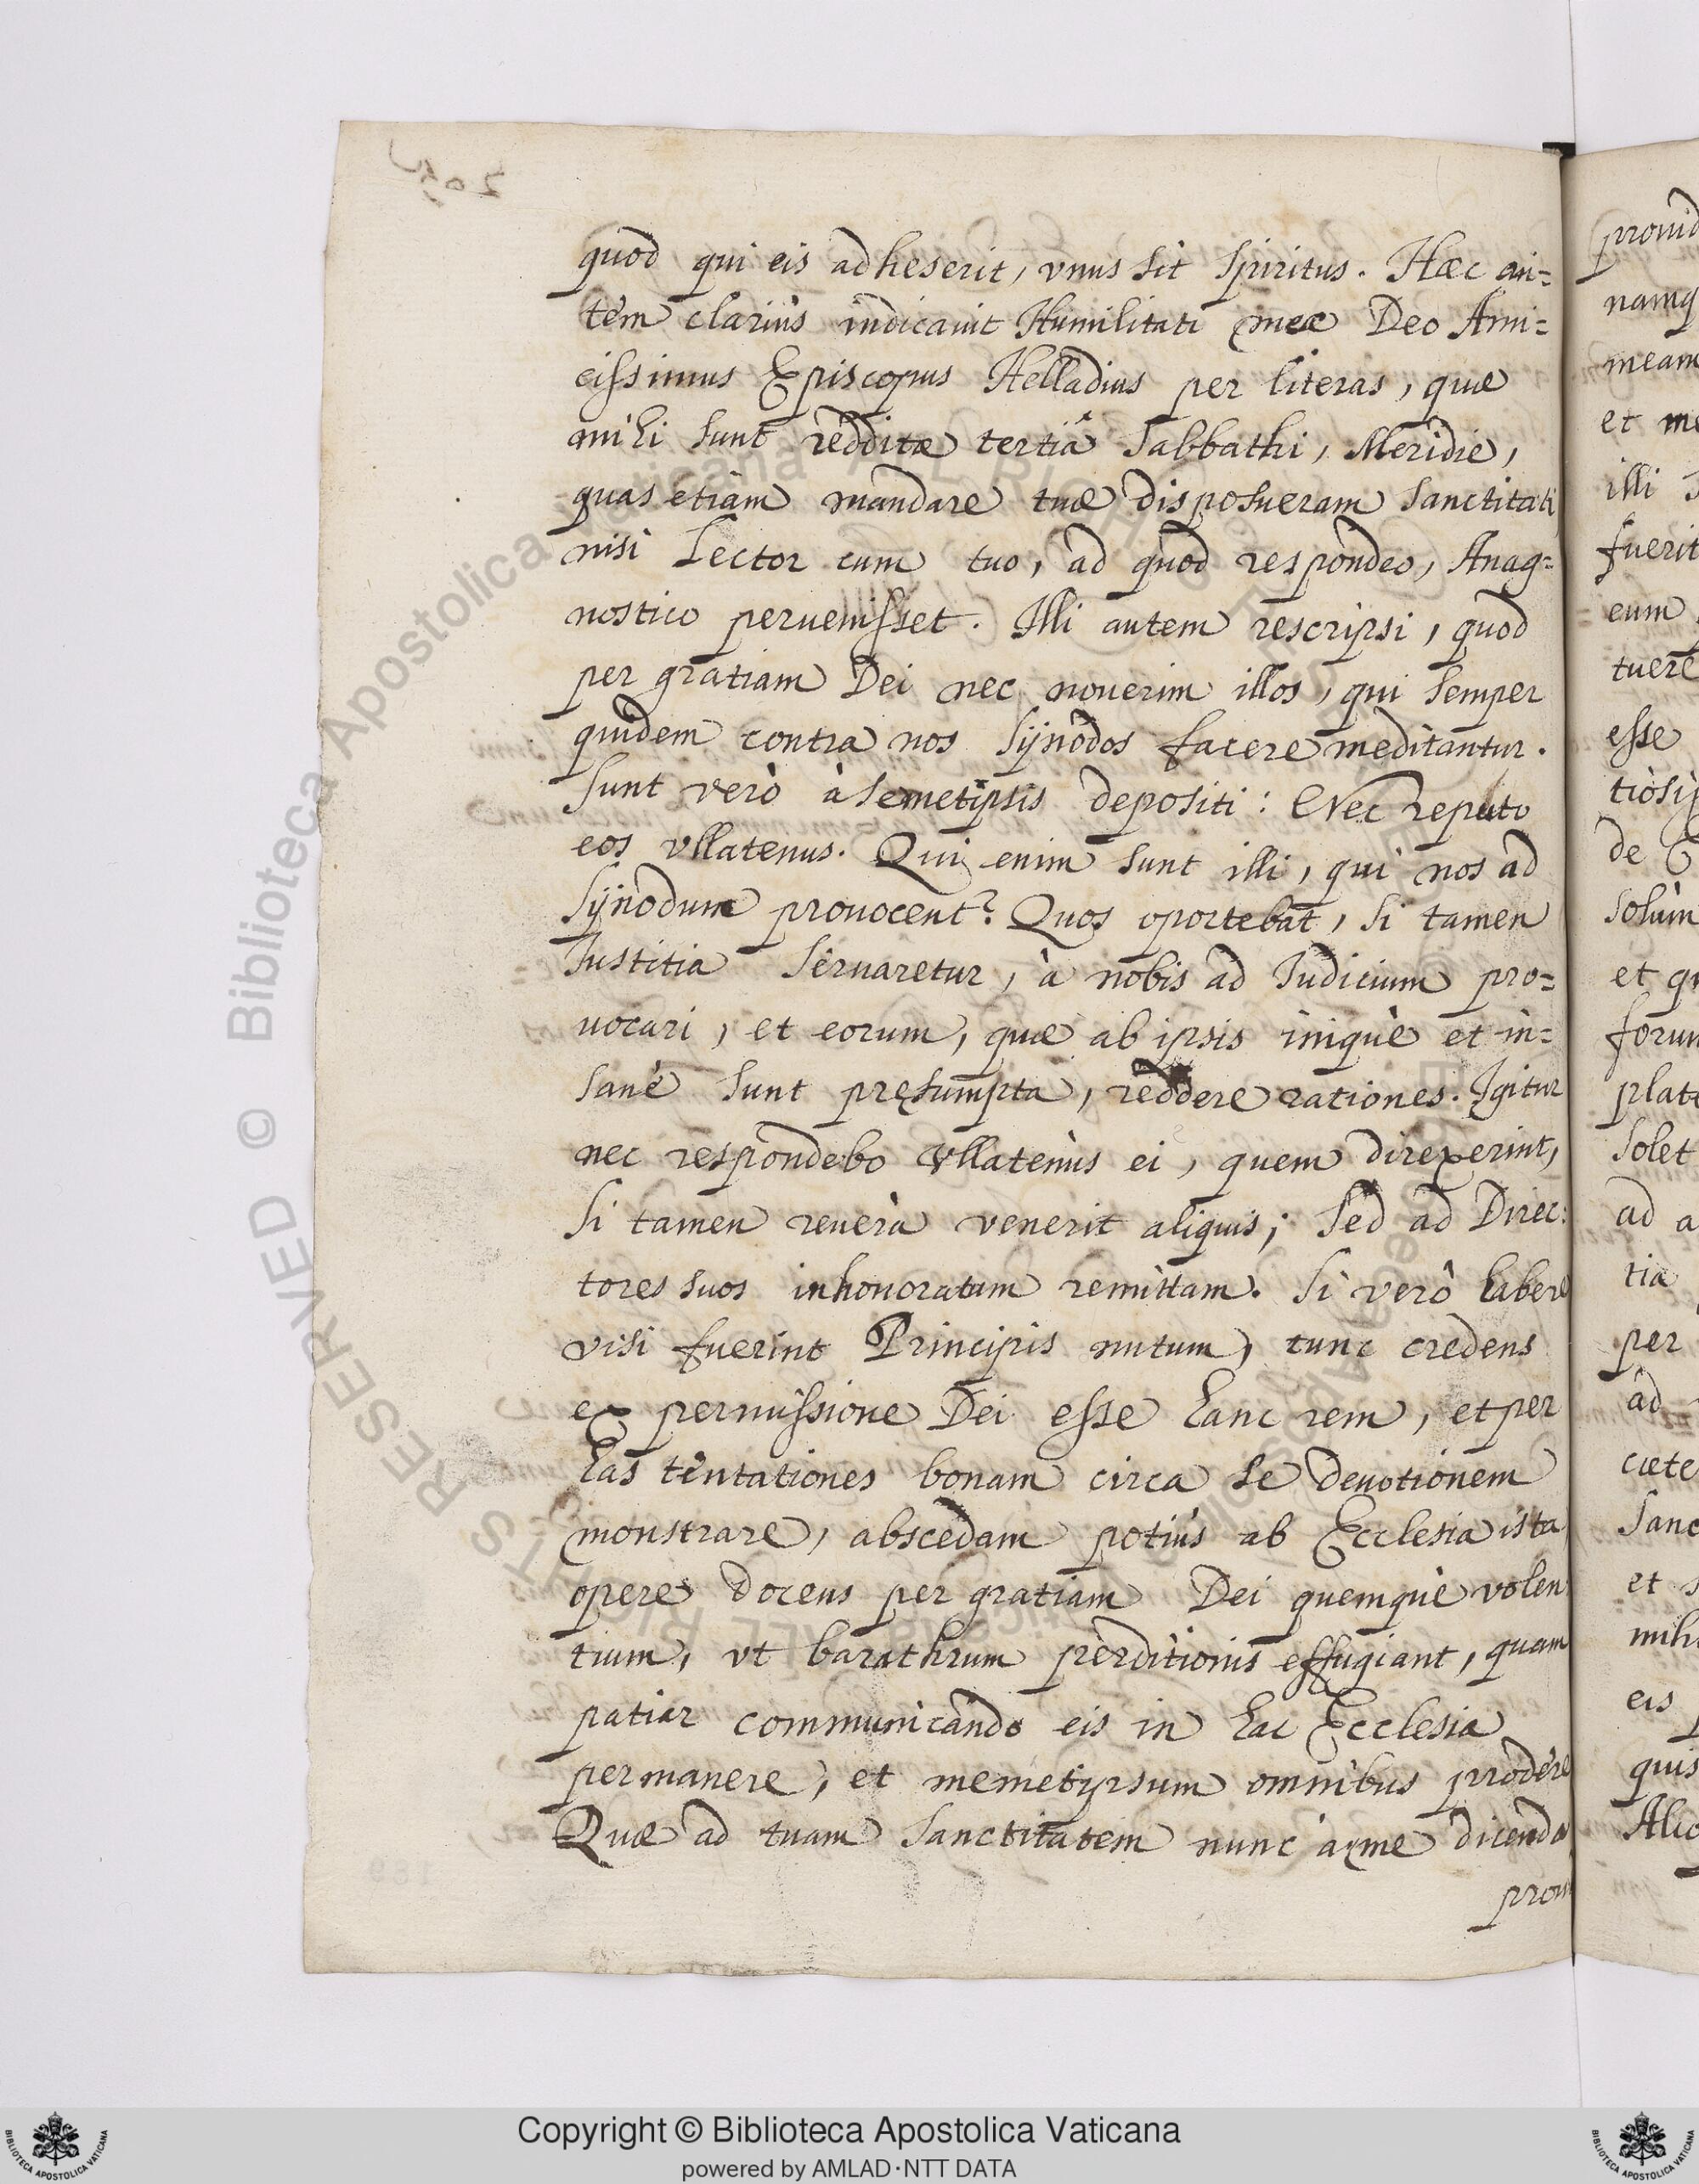 quod qui eis adheserit, vnus sit Spiritus. Hæc au=
tem clariùs indicauit Humilitati meæ Deo Ami=
cissimus Episcopus Helladius per literas, quæ
mihi sunt redditæ tertiâ Sabbathi, Meridie,
quas etiam mandare tuæ disposueram Sanctitati
nisi Lector cum tuo, ad quod respondeo, Anag=
nostico peruenisset. Illi autem rescripsi, quod
per gratiam Dei nec nouerim illos, qui semper
quidem contra nos Sÿnodos facere meditantur.
Sunt verò à semetipsis depositi: Nec reputo
eos vllatenus. Qui enim sunt illi, qui nos ad
Sÿnodum prouocent? Quos oportebat, si tamen
Iustitia seruaretur, à nobis ad Iudicium pro=
uocari, et eorum, quæ ab ipsis iniquè et in=
sanè sunt pręsumpta, reddere rationes. Igitur
nec respondebo vllatenùs ei, quem direxerint,
Si tamen reuerà venerit aliquis; Sed ad Direc:
tores suos inhonoratum remittam. Si verò habere
visi fuerint Principis nutum, tunc credens
ex permissione Dei esse hanc rem, et per
has tentationes bonam circa se deuotionem
monstrare, abscedam potiùs ab Ecclesia ista,
opere docens per gratiam Dei quemquè volen
tium, vt barathrum perditionis effugiant, quam
patiar communicando eis in hac Ecclesia
permanere, et memetipsum omnibus prodere
Quæ ad tuam Sanctitatem nunc à me dicenda
proui
prouid
namq
meam
et me
illi
fuerit
eum
tuere
esse
de
solùm
et qu
forum
plate
solet
ad a
tia
per
ad
cæte
Sanc
et s
mihi
eis p
quis
Alic
Copyright © Biblioteca Apostolica Vaticana
powered by AMLAD·NTT DATA